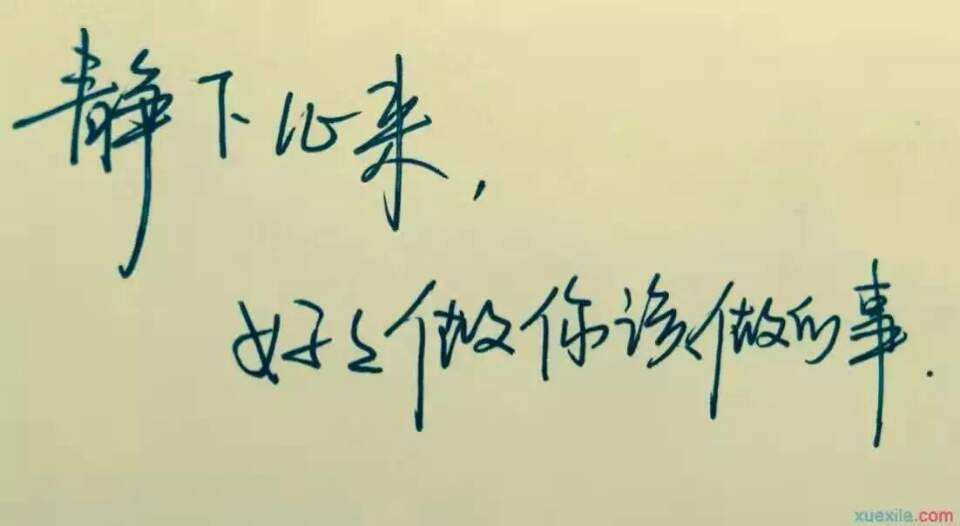 静下心来,
好好做你该做的事.
xuexila.com